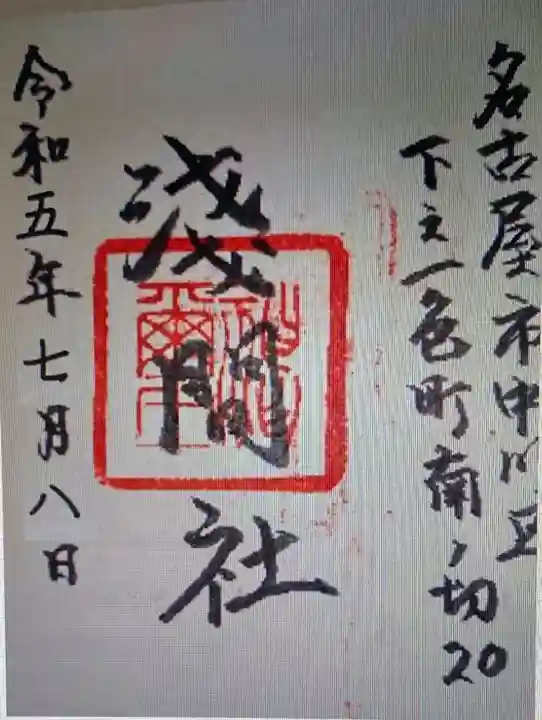 名古屋市中川区
下之一色町南ノ切20
淺間社
令和五年七月八日